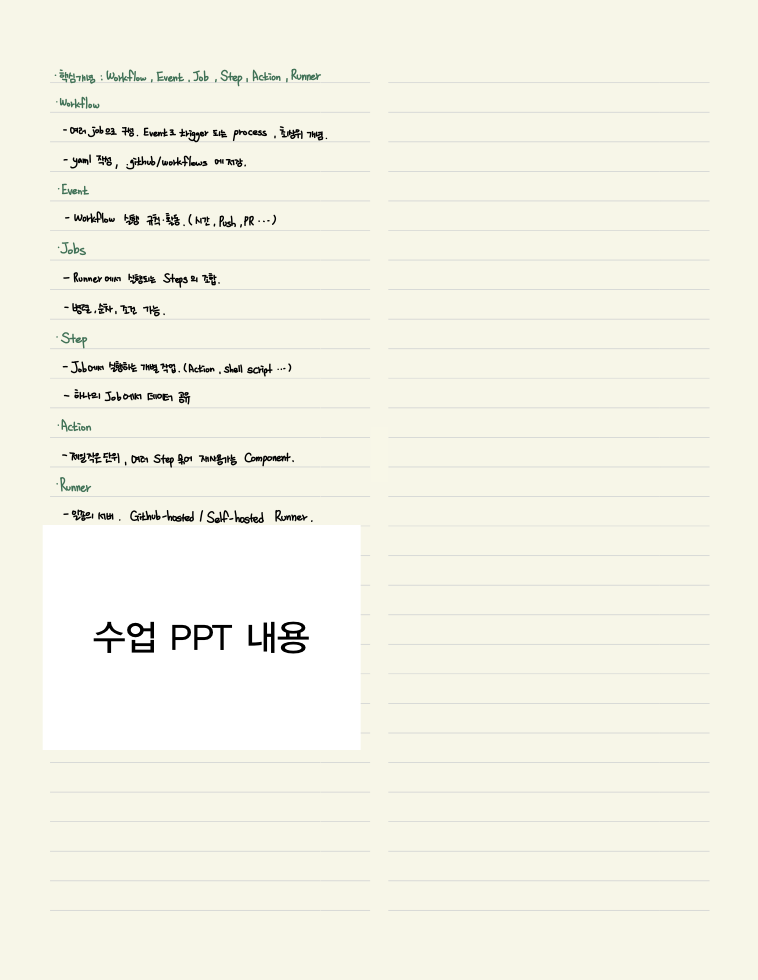 · 핵심개념 : Workflow, Event, Job, Step, Action, Runner
· Workflow
- 여러 job으로 구성. Event로 trigger 되는 process, 최상위 개념.
- yaml 작성, .github/workflows 에 저장.
· Event
- Workflow 실행 규칙·활동. (시간, Push, PR ···)
· Jobs
- Runner에서 실행되는 Steps의 조합.
- 병렬, 순차, 조건 가능.
· Step
- Job에서 실행하는 개별 작업. (Action, shell script ···)
- 하나의 Job에서 데이터 공유
· Action
- 제일작은단위, 여러 Step 묶어 재사용가능 Component.
· Runner
- 일종의 서버. Github-hosted / Self-hosted Runner.
수업 PPT 내용